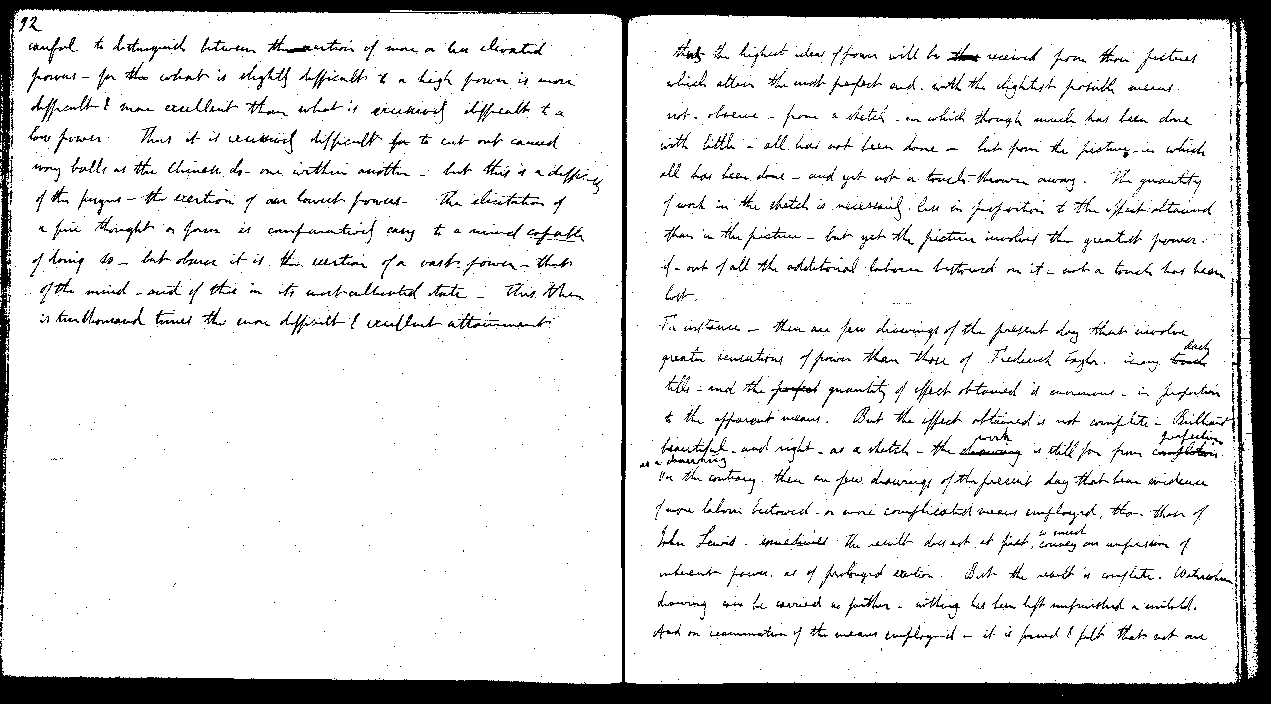 92
careful to distinguish between the exertion of more or less elevated
powers – for the what is slightly difficult to a high power is more
difficult & more excellent than what is excessively difficult to a
low power. Thus it is excessively difficult for to cut out carved
ivory balls as the Chinese do – one within another – but this is a difficulty
of the fingers – the exertion of our lowest powers – The elicitation of
a fine thought or form is comparatively easy to a mind capable
of doing so – but observe it is the exertion of a vast power – that
of the mind – and of this in its most cultivated state – this then
is ten thousand times the more difficult & excellent attainment.
that the highest ideas of power will be received from those pictures
which attain the most perfect end with the slightest possible means.
not – observe – from a sketch – in which though much has been done
with little – all has not been done – but from the picture, in which
all has been done – and yet not a touch thrown away. The quantity
of work in the sketch is necessarily less in proportion to the effect obtained
than in the picture – but yet the picture involves the greatest power.
if – out of all the additional labour bestowed on it – not a touch has been
lost.
For instance – there are few drawings of the present day that involve
greater sensations of power than those of Frederick Tayler. Every touch dash
tells – and the perfect quantity of effect obtained is enormous – in proportion
to the apparent means. But the effect obtained is not complete – Brilliant
beautiful – and right – as a sketch – the drawing work is still far from completion perfection
as a drawing
On the contrary there are few drawings of the present day that bear evidence
of more labour bestowed – or more complicated means employed, than those of
John Lewis – sometimes the result does not, at first, so much convey an impression of
inherent power, as of prolonged exertion. But the result is complete. Watercolour
drawing can be carried no farther – nothing has been left unfinished or untold.
And on examination of the means employed – it is found & felt that not one